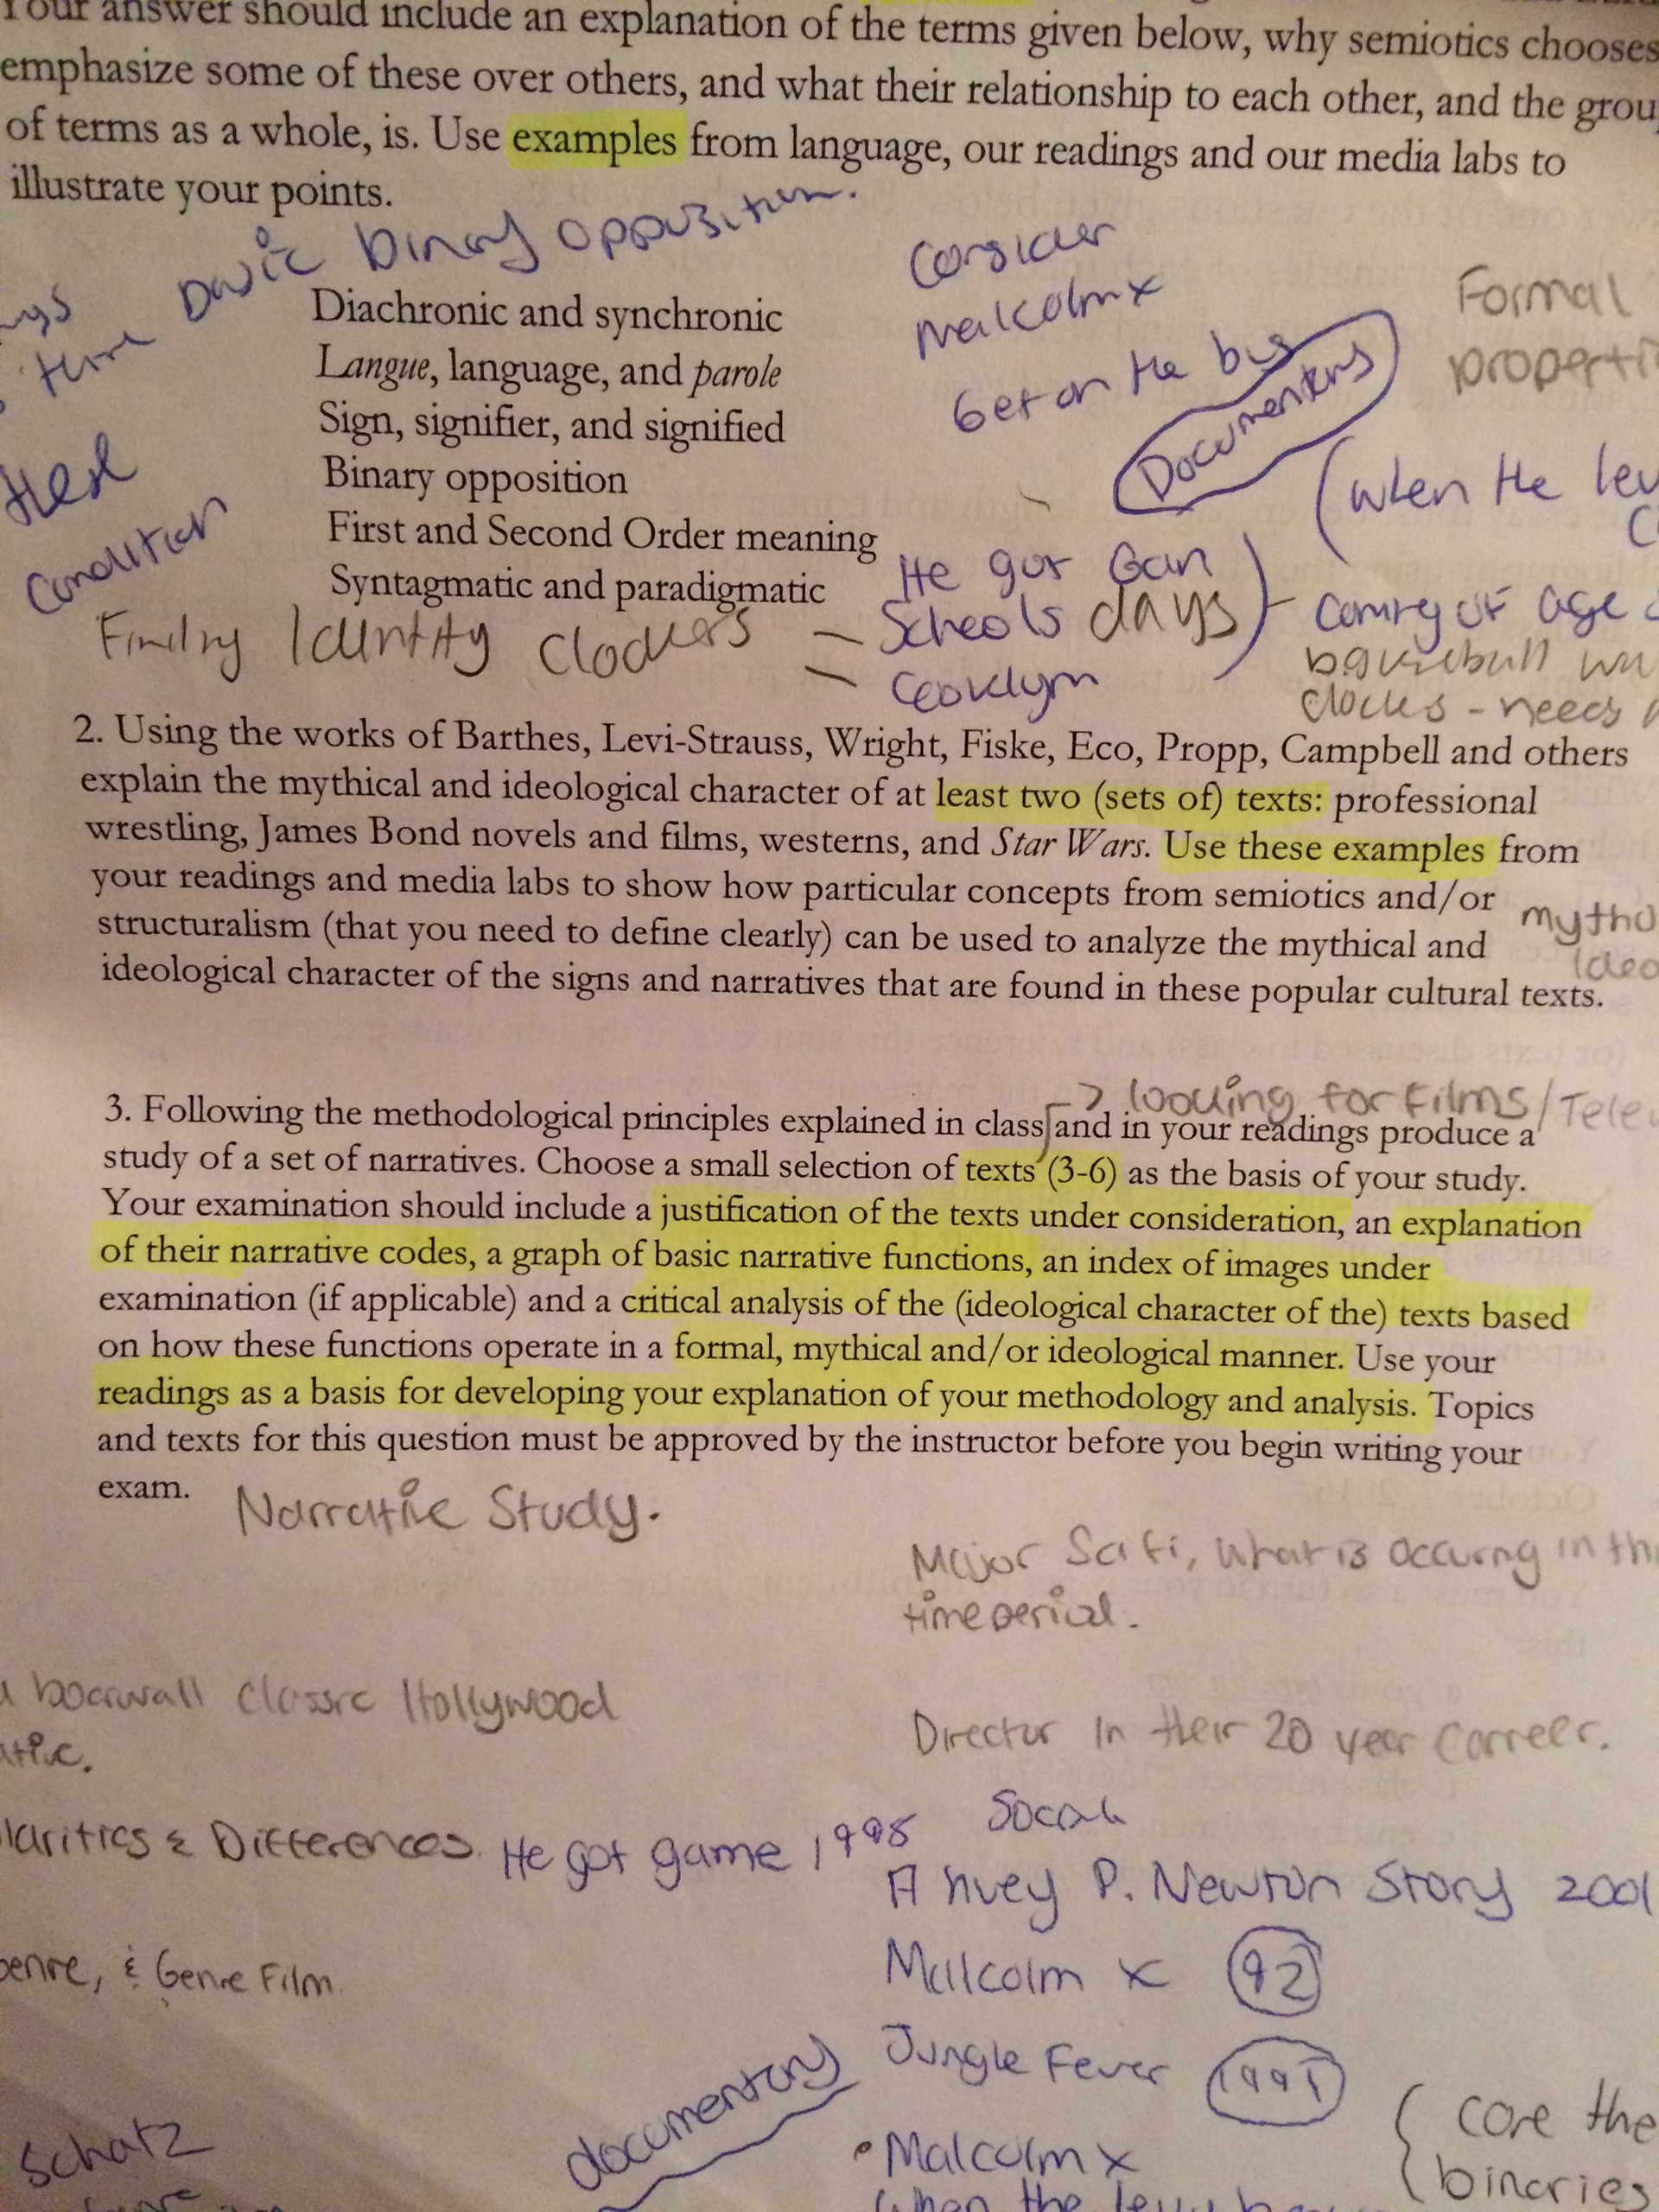 Your answer should include an explanation of the terms given below, why semiotics chooses
emphasize some of these over others, and what their relationship to each other, and the grou
of terms as a whole, is. Use examples from language, our readings and our media labs to
illustrate your points.
binary opposition.
Consider
Malcolm x
Get on the bus
Documentary
Formal
Diachronic and synchronic
Langue, language, and parole
Sign, signifier, and signified
Binary opposition
First and Second Order meaning
Syntagmatic and paradigmatic
Condition
(when the lev
He got Gam
Schools days
coming of age
Finding Identity Clockers
clockers - needs
2. Using the works of Barthes, Levi-Strauss, Wright, Fiske, Eco, Propp, Campbell and others
explain the mythical and ideological character of at least two (sets of) texts: professional
wrestling, James Bond novels and films, westerns, and Star Wars. Use these examples from
your readings and media labs to show how particular concepts from semiotics and/or
structuralism (that you need to define clearly) can be used to analyze the mythical and
ideological character of the signs and narratives that are found in these popular cultural texts.
mytho
Ideo
looking for Films/Tele
3. Following the methodological principles explained in class and in your readings produce a
study of a set of narratives. Choose a small selection of texts (3-6) as the basis of your study.
Your examination should include a justification of the texts under consideration, an explanation
of their narrative codes, a graph of basic narrative functions, an index of images under
examination (if applicable) and a critical analysis of the (ideological character of the) texts based
on how these functions operate in a formal, mythical and/or ideological manner. Use your
readings as a basis for developing your explanation of your methodology and analysis. Topics
and texts for this question must be approved by the instructor before you begin writing your
exam.
Narrative Study.
Major Sci fi, what is occurng in th
time period.
classic Hollywood
Director in their 20 year Carreer.
larities & Differences.
He got game 1998
A huey P. Newton Story 2001
Malcolm x 92
enre, & Genre Film
Jungle Fever 1991
documentary
Schatz
• Malcolm x
core the
binaries